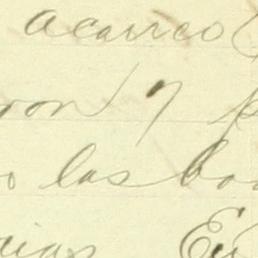 acarreo
ron y p
o las bo
cias En